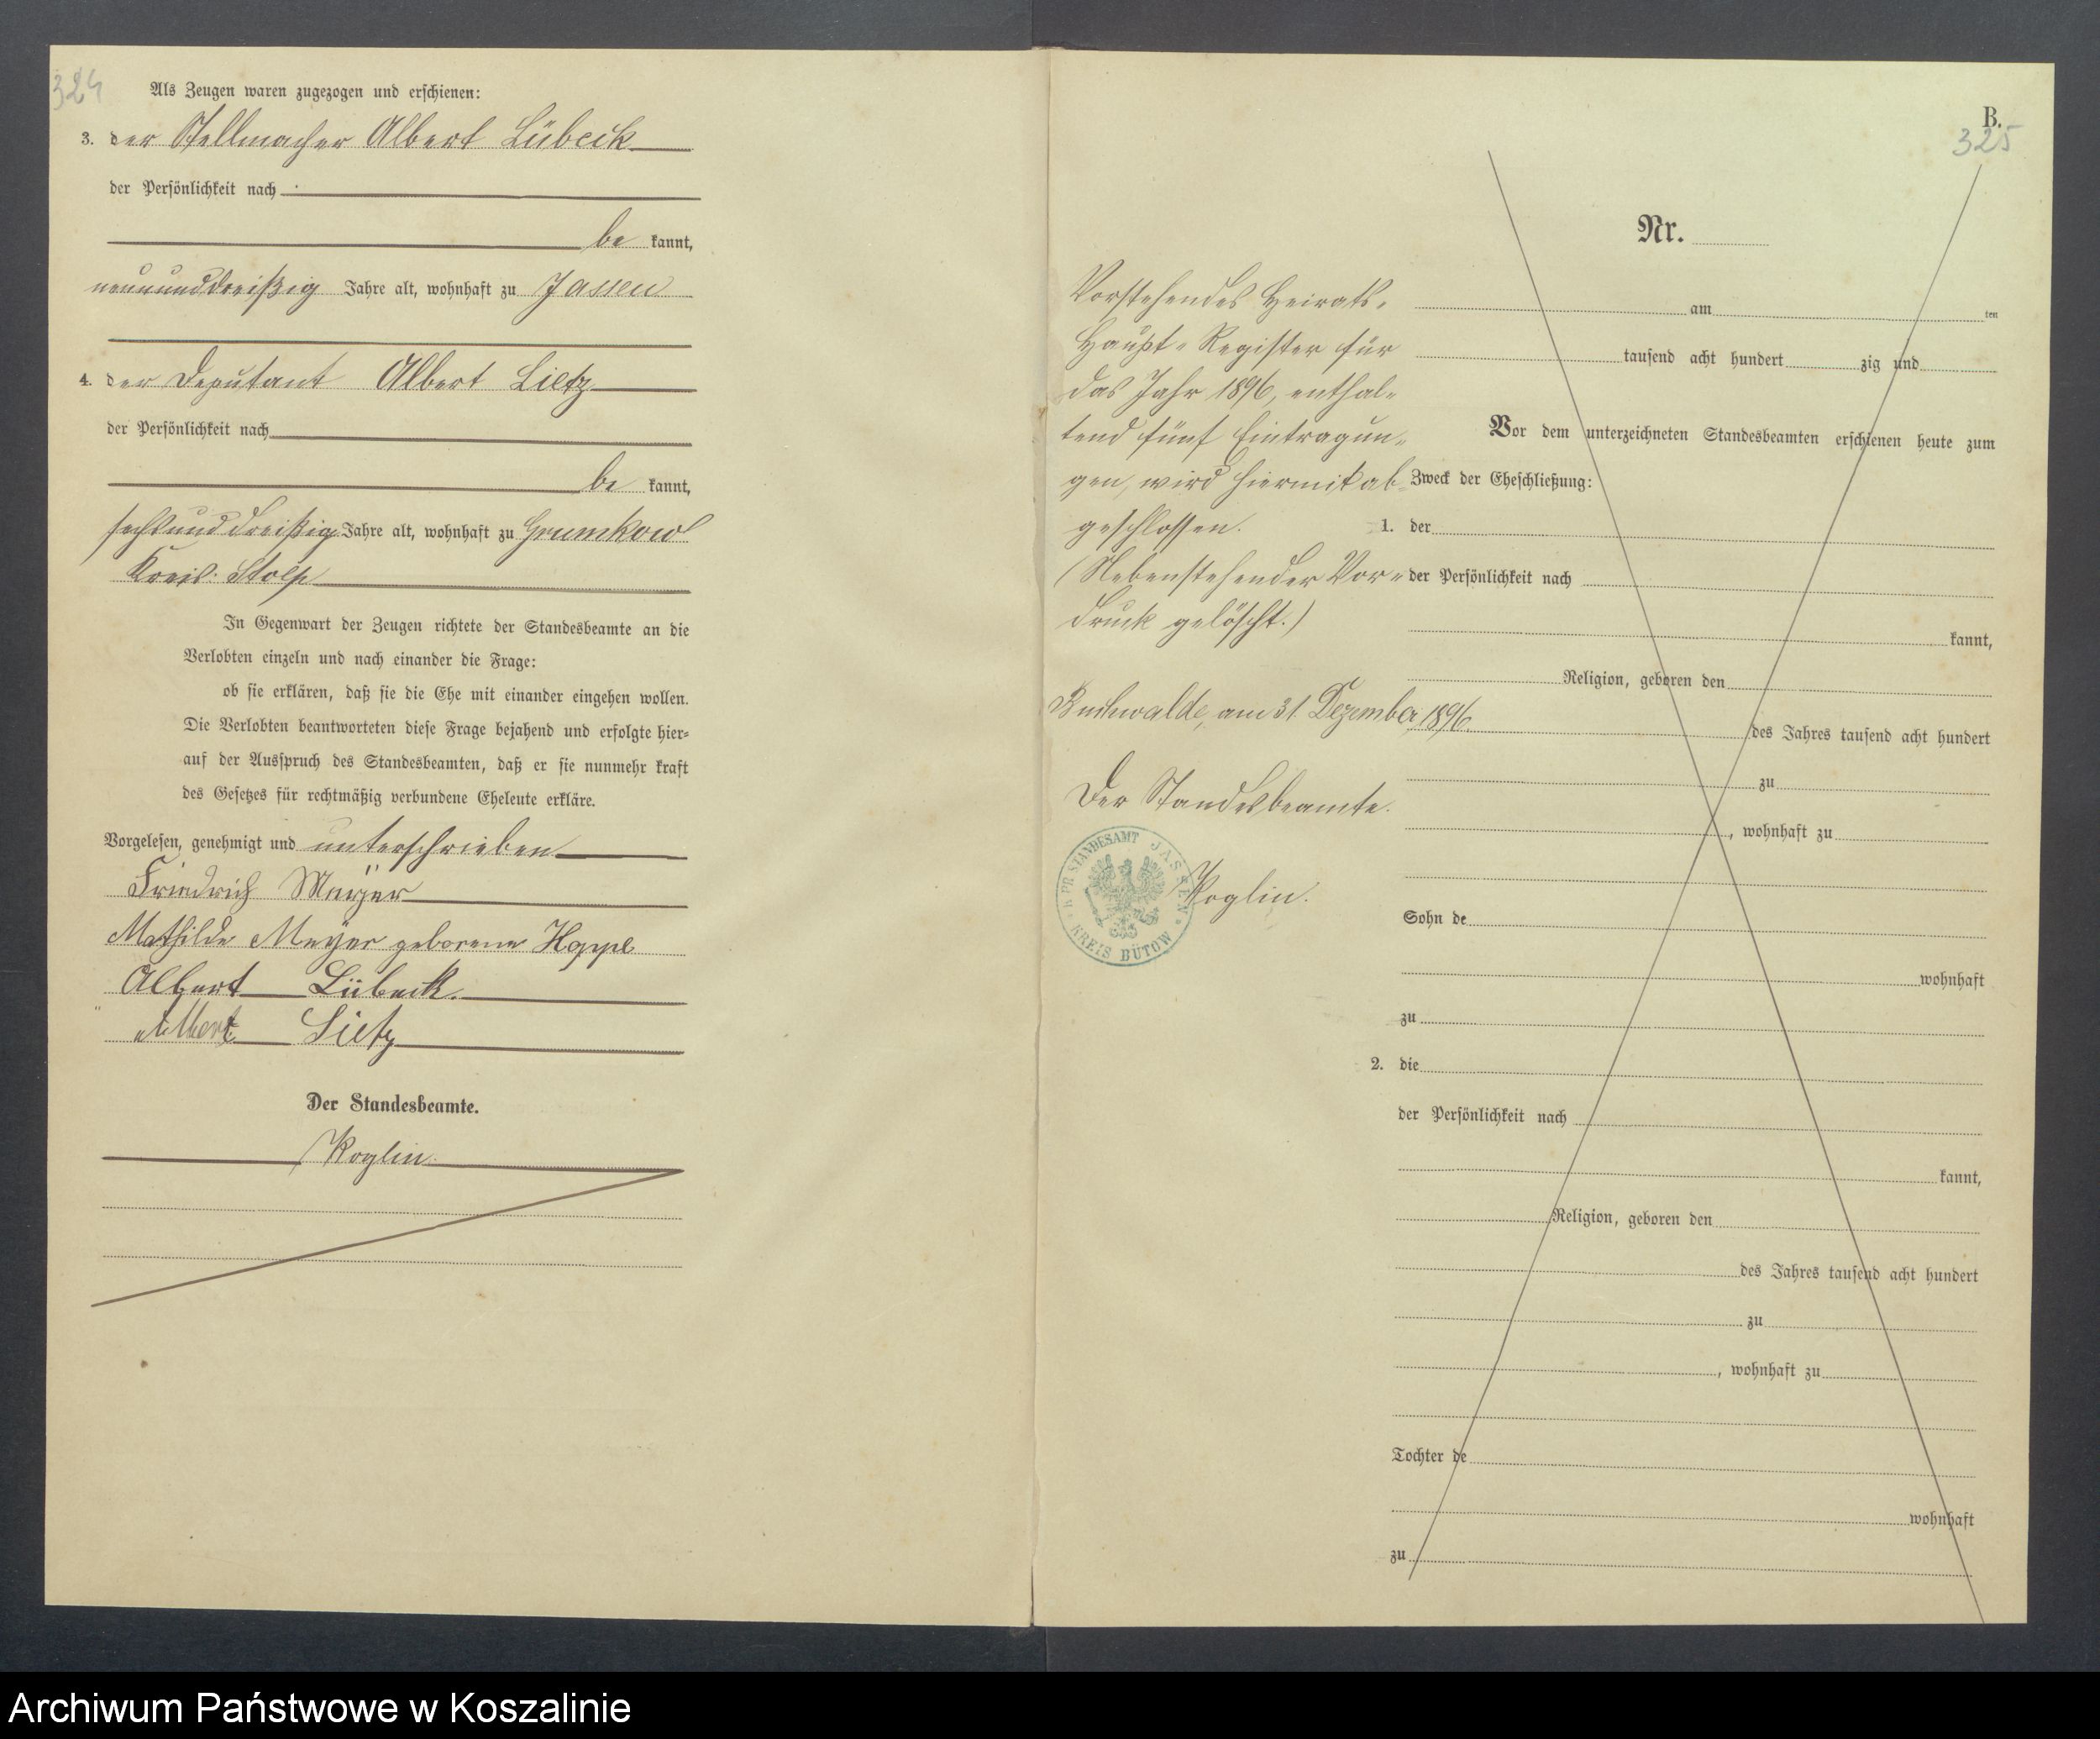 324
Als Zeugen waren zugezogen und erschienen:
3. der Stellmacher Albert Lübeck
der Persönlichkeit nach
be kannt,
neununddreißig Jahre alt, wohnhaft zu Jassen
4. der Deputant Albert Lietz
der Persönlichkeit nach
be kannt,
sechsunddreißig Jahre alt, wohnhaft zu Grumkow
Kreis Stolp
In Gegenwart der Zeugen richtete der Standesbeamte an die
Verlobten einzeln und nach einander die Frage:
ob sie erklären, daß sie die Ehe mit einander eingehen wollen.
Die Verlobten beantworteten diese Frage bejahend und erfolgte hier-
auf der Ausspruch des Standesbeamten, daß er sie nunmehr kraft
des Gesetzes für rechtmäßig verbundene Eheleute erkläre.
Vorgelesen, genehmigt und unterschrieben
Friedrich Meÿer
Mathilde Meÿer geborene Hoppe
Albert Lübeck.
Albert Lietz
Der Standesbeamte.
Koglin.
B.
325
Nr.
Vorstehendes Heirats-
Haupt-Register für
das Jahr 1896, enthal-
tend fünf Eintragun-
gen, wird hiermit ab-
geschlossen.
(Nebenstehender Vor-
druck gelöscht.)
Buchwalde, am 31. Dezember 1896.
Der Standesbeamte.
Koglin.
K. PR. STANDESAMT JASSEN
KREIS BÜTOW
am ten
tausend acht hundert zig und
Vor dem unterzeichneten Standesbeamten erschienen heute zum
Zweck der Eheschließung:
1. der
der Persönlichkeit nach
kannt,
Religion, geboren den
des Jahres tausend acht hundert
zu
, wohnhaft zu
Sohn de
wohnhaft
zu
2. die
der Persönlichkeit nach
kannt,
Religion, geboren den
des Jahres tausend acht hundert
zu
, wohnhaft zu
Tochter de
wohnhaft
zu
Archiwum Państwowe w Koszalinie